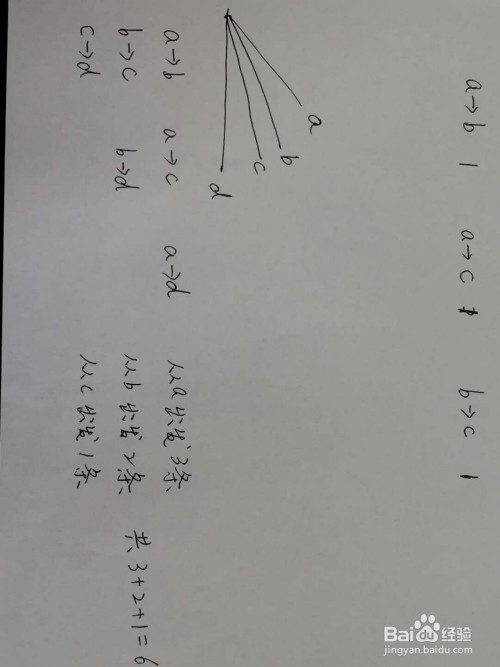 a→b 1 a→c 1 b→c 1
a
b
c
d
a→b a→c a→d 从a出发3条
b→c b→d 从b出发2条 共3+2+1=6
c→d 从c出发1条
Bai du 经验
jingyan.baidu.com